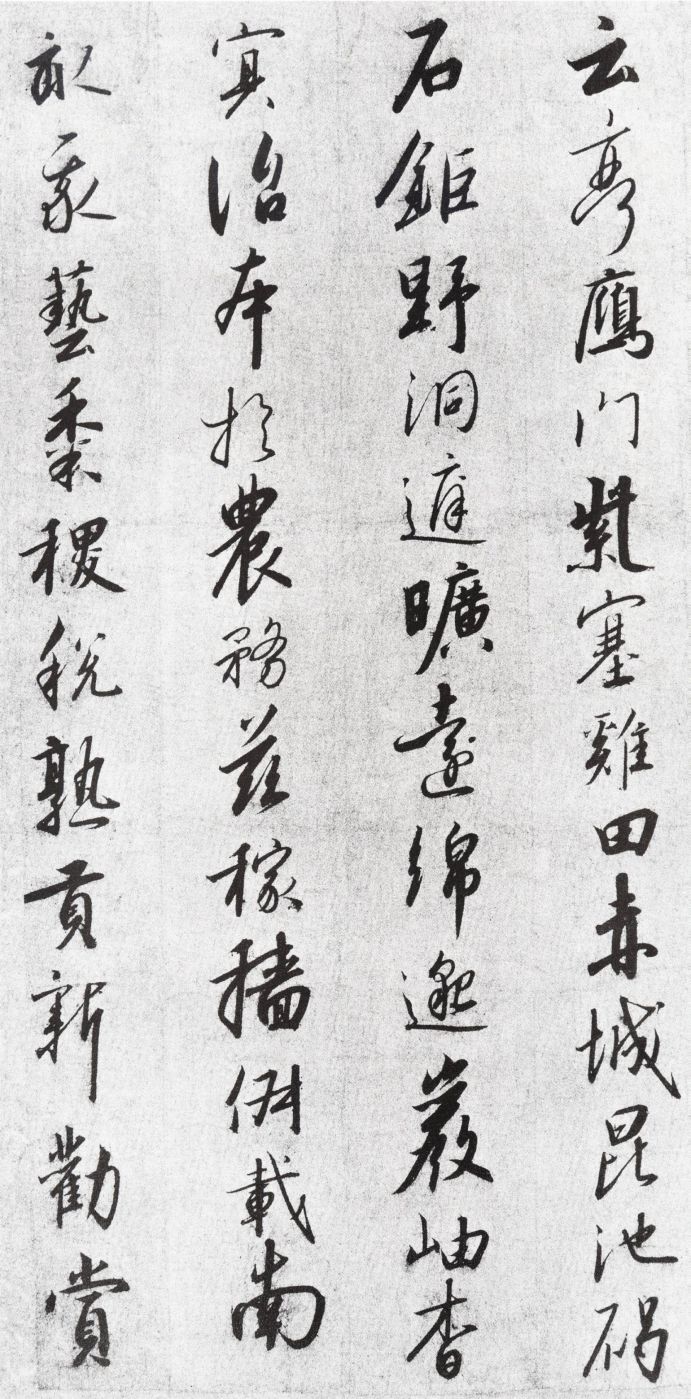 云亭鴈門紫塞雞田赤城昆池碣
石鉅野洞庭曠遠綿邈巖岫杳
冥治本於農務茲稼穡俶載南
畝我藝黍稷稅熟貢新勸賞